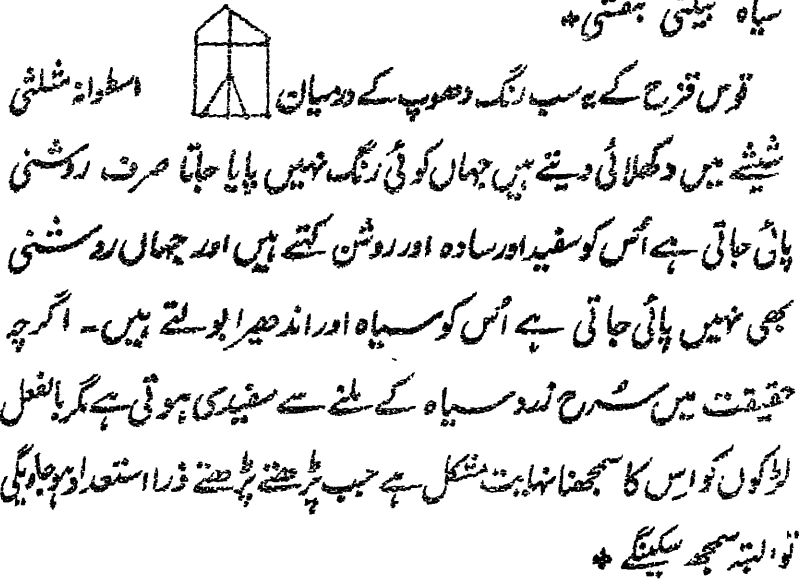 سیاہ بیگنی بنفشی *
قوس قزح کے یہ سب رنگ دھوپ کے درمیان اسطوانہ مثلثی
شیشے میں دکھلائی دیتے ہیں جہاں کوئی رنگ نہیں پایا جاتا صرف روشنی
پائی جاتی ہے اُس کو سفید اور سادہ اور روشن کہتے ہیں اور جہاں روشنی
بھی نہیں پائی جاتی ہے اُس کو سیاہ اور اندھیرا بولتے ہیں۔ اگرچہ
حقیقت میں سُرح زرد سیاہ کے ملنے سے سفیدی ہوتی ہے مگر بالفعل
لڑکوں کو اِس کا سمجھنا نہایت مشکل ہے جب پڑھتے پڑھتے ذرا استعداد ہو جاویگی
تو البتہ سمجھ سکینگے *